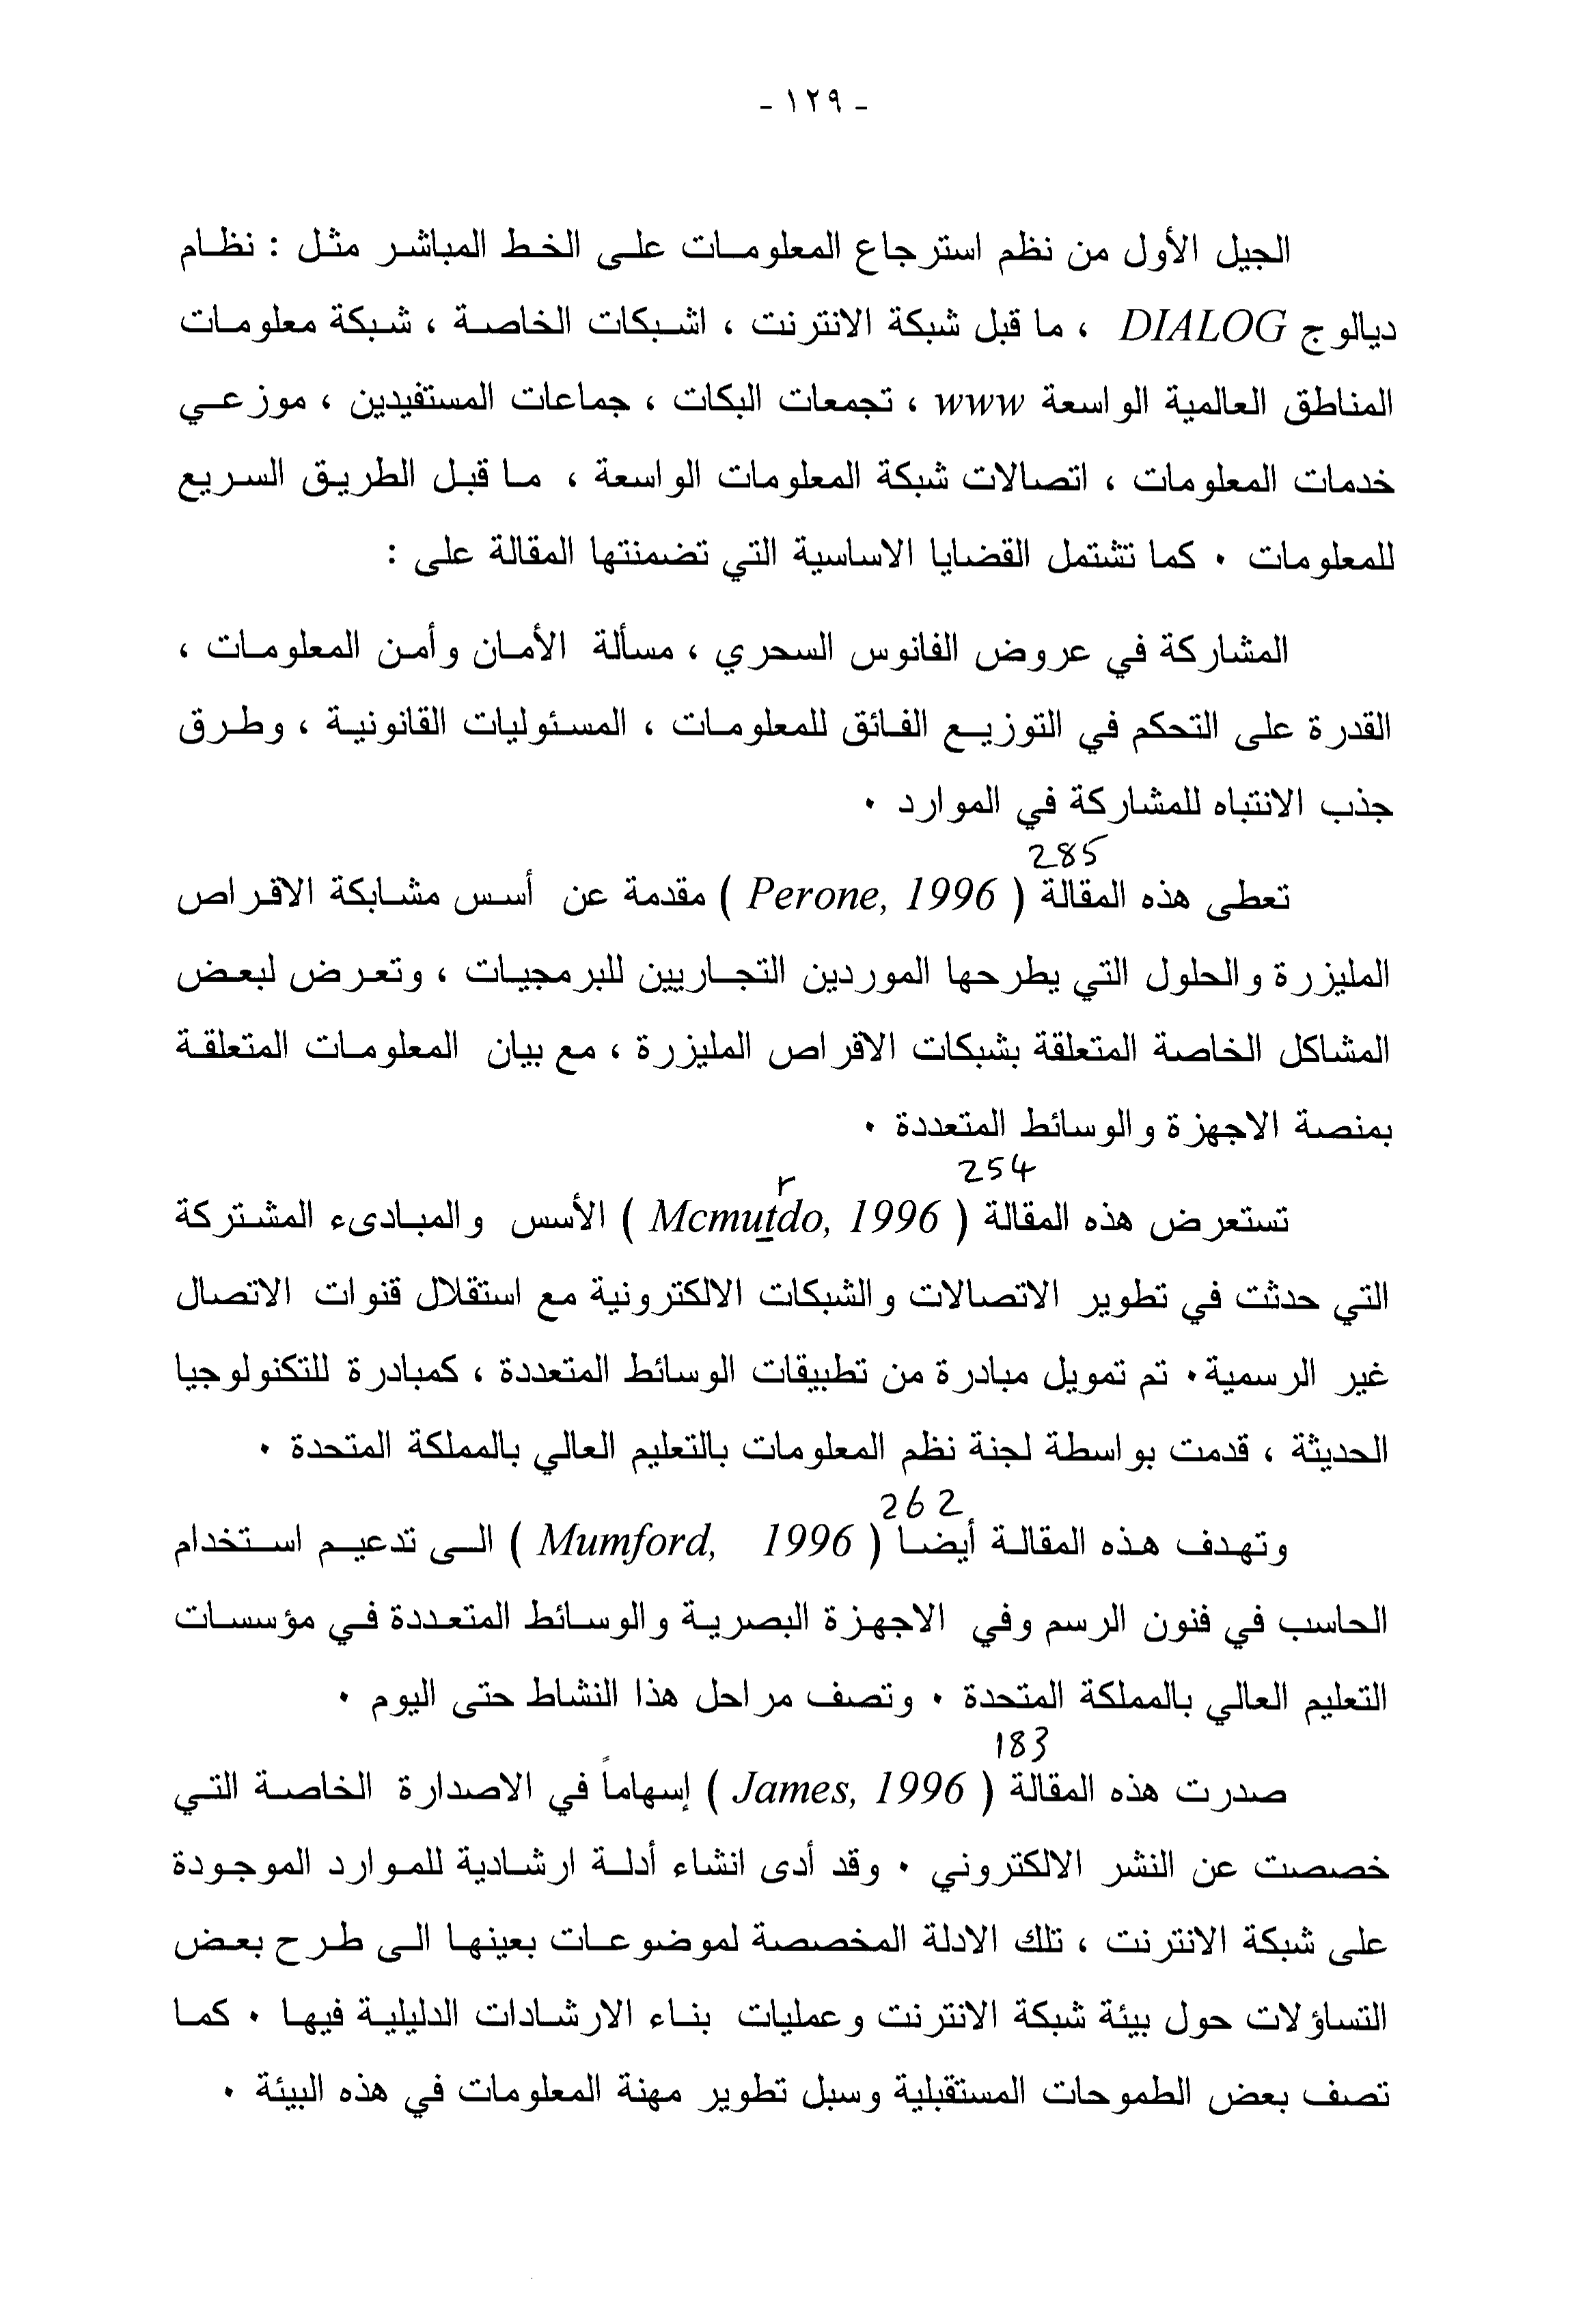 - ١٢٩ -
الجيل الأول من نظم استرجاع المعلومات على الخط المباشر مثل : نظام
ديالوج DIALOG ، ما قبل شبكة الانترنت ، اشبكات الخاصة ، شبكة معلومات
المناطق العالمية الواسعة www ، تجمعات البكات ، جماعات المستفيدين ، موزعي
خدمات المعلومات ، اتصالات شبكة المعلومات الواسعة ، ما قبل الطريق السريع
للمعلومات ٠ كما تشتمل القضايا الاساسية التي تضمنتها المقالة على :
المشاركة في عروض الفانوس السحري ، مسألة الأمان وأمن المعلومات ،
القدرة على التحكم في التوزيع الفائق للمعلومات ، المسئوليات القانونية ، وطرق
جذب الانتباه للمشاركة في الموارد ٠
285
تعطى هذه المقالة ( Perone, 1996 ) مقدمة عن أسس مشابكة الاقراص
المليزرة والحلول التي يطرحها الموردين التجاريين للبرمجيات ، وتعرض لبعض
المشاكل الخاصة المتعلقة بشبكات الاقراص المليزرة ، مع بيان المعلومات المتعلقة
بمنصة الاجهزة والوسائط المتعددة ٠
254
r
تستعرض هذه المقالة ( Mcmutdo, 1996 ) الأسس والمبادىء المشتركة
التي حدثت في تطوير الاتصالات والشبكات الالكترونية مع استقلال قنوات الاتصال
غير الرسمية٠ تم تمويل مبادرة من تطبيقات الوسائط المتعددة ، كمبادرة للتكنولوجيا
الحديثة ، قدمت بواسطة لجنة نظم المعلومات بالتعليم العالي بالمملكة المتحدة ٠
262
وتهدف هذه المقالة أيضا ( Mumford, 1996 ) الى تدعيم استخدام
الحاسب في فنون الرسم وفي الاجهزة البصرية والوسائط المتعددة في مؤسسات
التعليم العالي بالمملكة المتحدة ٠ وتصف مراحل هذا النشاط حتى اليوم ٠
183
صدرت هذه المقالة ( James, 1996 ) إسهاماً في الاصدارة الخاصة التي
خصصت عن النشر الالكتروني ٠ وقد أدى انشاء أدلة ارشادية للموارد الموجودة
على شبكة الانترنت ، تلك الادلة المخصصة لموضوعات بعينها الى طرح بعض
التساؤلات حول بيئة شبكة الانترنت وعمليات بناء الارشادات الدليلية فيها ٠ كما
تصف بعض الطموحات المستقبلية وسبل تطوير مهنة المعلومات في هذه البيئة ٠